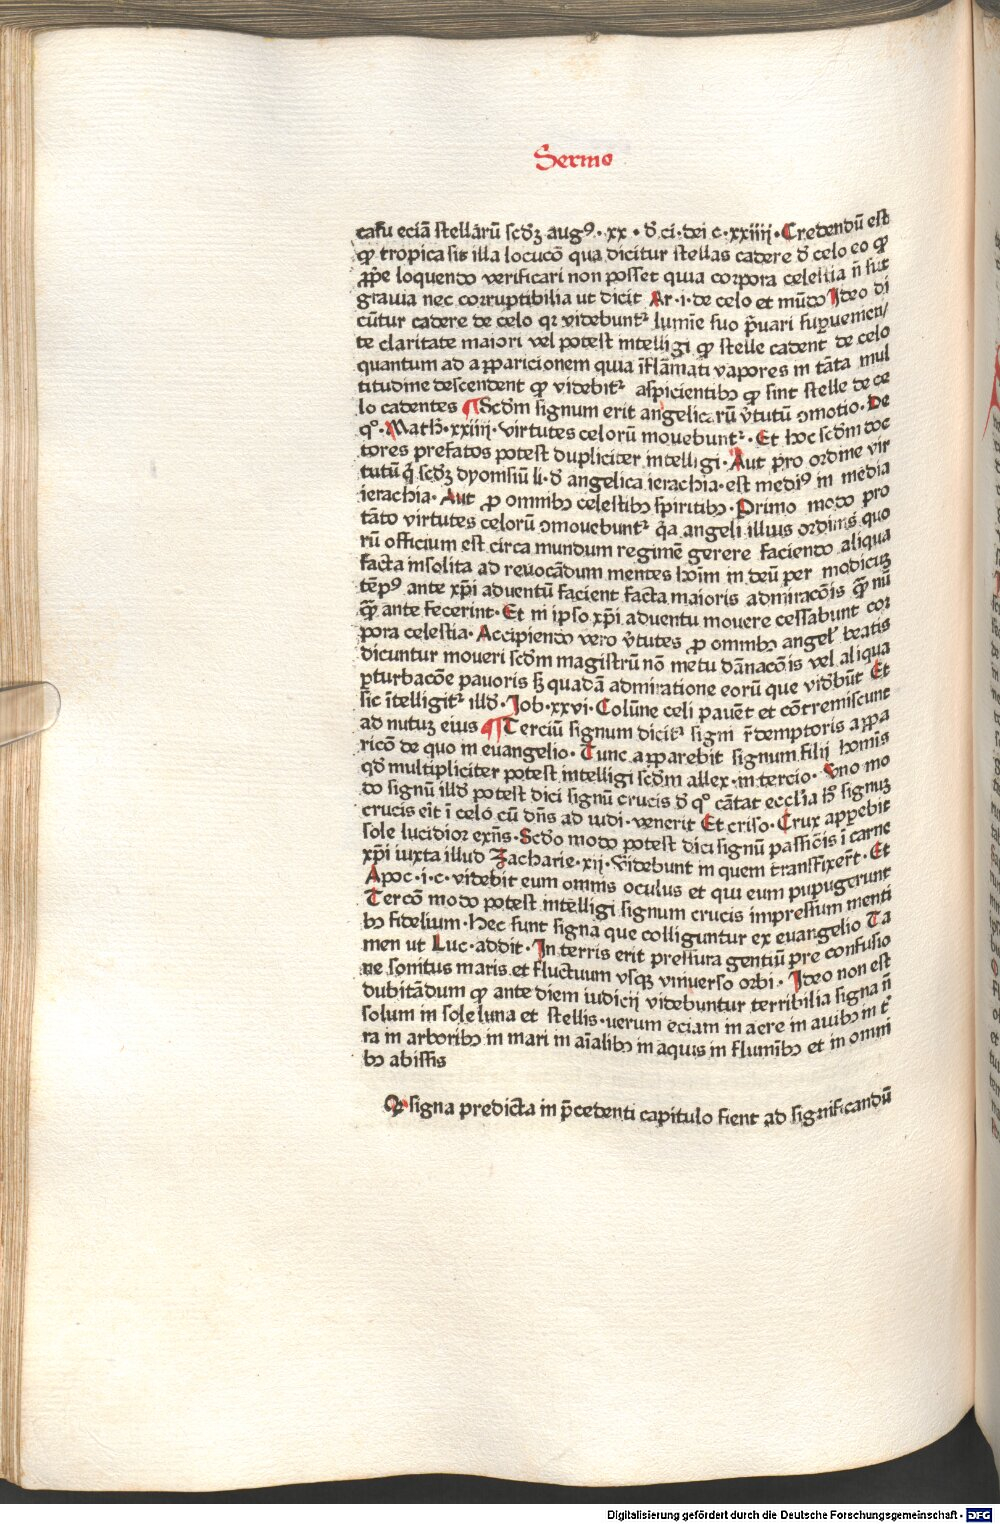 Sermo
casu eciā stellarū scd̄ꝫ augꝰ· xx · d̄ ci· dei c· xxiiii· Credendū est
ꝙ tropica sit illa locucō qua dicitur stellas cadere d̄ celo eo ꝙ
ꝓṕe loquendo verificari non posset quia corpora celestia n̄ sūt
grauia nec corruptibilia ut dicit Ar· i· de celo et mūdo Ideo di
cūtur cadere de celo qꝛ videbuntᷣ lumīe suo p̄uari suꝑuenien/
te claritate maiori vel potest intelligi ꝙ stelle cadent de celo
quantum ad apparicionem quia īflāmati vapores in tāta mul
titudine descendent ꝙ videbitᷣ aspicientibꝫ ꝙ sint stelle de ce
lo cadentes ¶ Scdm signum erit angelicarū v̄tutū ꝯmotio· De
qͦ· Math· xxiiii· virtutes celorū mouebuntᷣ· Et hoc scdm doc
tores prefatos potest dupliciter intelligi· Aut pro ordine vir
tutū q̄ scd̄ꝫ dyonisiū li· d̄ angelica ierachia· est mediꝰ in media
ierachia· Aut ꝓ omnibꝫ celestibꝫ spiritibꝫ· Primo modo pro
tāto virtutes celorū ꝯmouebuntᷣ q̄a angeli illius ordinis quo
rū officium est circa mundum regimē gerere faciendo aliqua
facta insolita ad reuocādum mentes hoīm in deū per modicuꝫ
tēpꝰ ante xp̄i aduentū facient facta maioris admiracōis ꝙ̄ nū
ꝙ̄ ante fecerint· Et in ipso xp̄i aduentu mouere cessabunt cor
pora celestia· Accipiendo vero v̄tutes ꝓ omnibꝫ angel̓ beatis
dicuntur moueri scdm magistrū nō metu dānacōis vel aliqua
ꝑturbacōe pauoris sꝫ quadā admiratione eorū que vidb̄ūt Et
sic ītelligitᷣ illd̄· Job· xxvi· Colūne celi pauēt et cōtremiscunt
ad nutuꝫ eius ¶ Terciū signum dicitᷣ signī r̄demptoris appa
ricō de quo in euangelio· Tunc apparebit signum filij hominis
qd̄ multipliciter potest intelligi scdm allex· in tercio· Uno mo
do signū illd̄ potest dici signū crucis d̄ qͦ cātat eccl̄ia hͦ signuꝫ
crucis eīt ī celo cū dn̄s ad iudi· venerit Et criso· Crux apꝑebit
sole lucidior exn̄s· Scd̄o modo potest dici signū passiōis ī carne
xp̄i iuxta illud Zacharie· xii· Videbunt in quem transfixer̄t· Et
Apoc· i· c· videbit eum omnis oculus et qui eum pupugerunt
Tercō modo potest intelligi signum crucis impressum menti
bꝫ fidelium· Hec sunt signa que colliguntur ex euangelio Ta
men ut Luc· addit· In terris erit pressura gentiū pre confusio
ne sonitus maris et fluctuum vsqꝫ vniuerso orbi· Ideo non est
dubitādum ꝙ ante diem iudicij videbuntur terribilia signa n̄
solum in sole luna et stellis· uerum eciam in aere in auibꝫ in tr̄
ra in arboribꝫ in mari in aīalibꝫ in aquis in fluminibꝫ et in omni
bꝫ abissis
Qꝛ signa predicta in p̄cedenti capitulo fient ad significandū
Digitalisierung gefördert durch die Deutsche Forschungsgemeinschaft - DFG